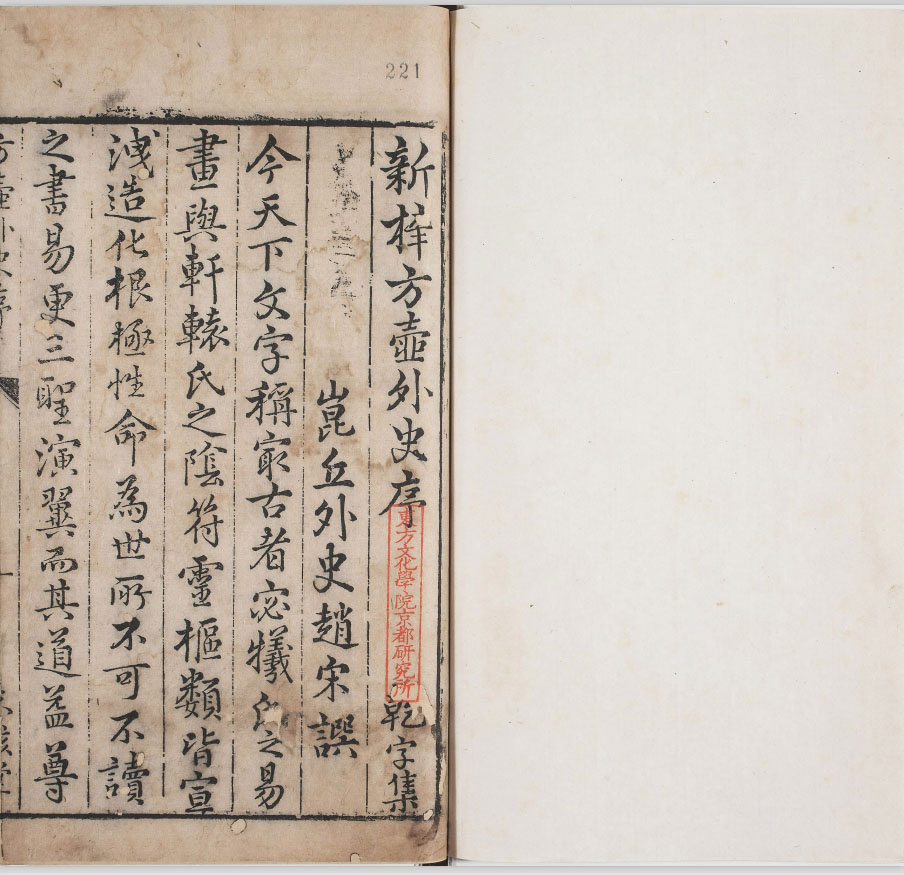 221
新梓方壺外史序
東方文化學院京都研究所
乾字集
崑丘外史趙宋譔
今天下文字稱㝡古者宓犧氏之易
畫與軒轅氏之陰符靈樞類皆宣
洩造化根極性命為世所不可不讀
之書易更三聖演翼而其道益尊
方壺外史序
一